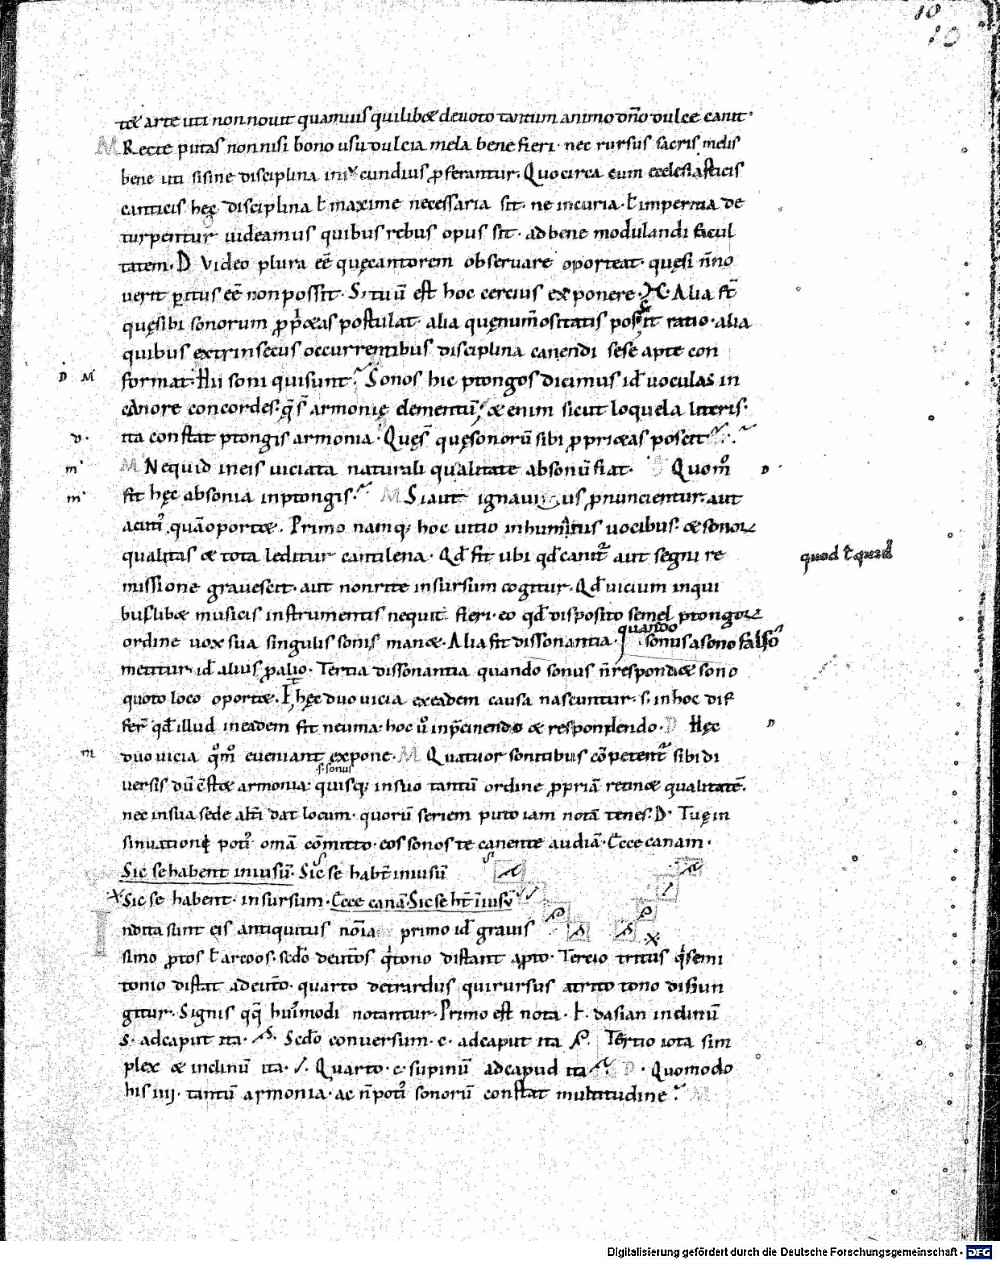 10
10
tæ arte uti non nouit quamuis quilibæ deuoto tantum animo dño dulce canit·
M Recte putas non nisi bono usu dulcia mela bene fieri· nec rursus sacris melis
bene uti si sine disciplina iniucundius pferantur· Quo circa cum ecclesiasticis
canticis hęc disciplina ł maxime necessaria sit· ne incuria· ł imperitia de
turpentur uideamus quibus rebus opus sit· ad bene modulandi facul
tatem· D Video plura eē quę cantorem obseruare oporteat· quę si n̄no
uerit pitus eē non possit· Si tuū est hoc cercius exponere· M· Alia st̄
quę sibi sonorum ppⁱæas postulat· alia quę numositatis poscit ratio· alia
quibus extrinsecus occurrentibus disciplina canendi sese apte con
D M format· Hii soni qui sunt? Sonos hic ptongos dicimus id· uoculas in
canore concordes· q̄ s̄ armonię elementū· æ enim sicut loquela litteris·
D· ita constat ptongis armonia· Quęs̄ quę sonorū sibi pprieæas poscit?
m· M Ne quid in eis uiciata naturali qualitate absonū fiat· Quom̊ D·
m· fit hęc absonia in ptongis? M Si aut ignauius pnuncientur· aut
acuti᷒ quā oportæ· Primo namq; hoc uitio in humanis uocibus· æ sonoꝝ
qualitas æ tota leditur cantilena· Qd̄ fit ubi qd̄ canit᷒ aut segni re
quod ł quid
missione grauescit· aut non rite in sursum cogitur· Qd̄ uicium in qui
buslibæ musicis instrumentis nequit fieri· eo qd̄ disposito semel ptongoꝝ
ordine uox sua singulis sonis manæ· Alia fit dissonantia· quando sonus a sono falso
mentitur id· alius p alio· Tertia dissonantia quando sonus n̄ respondæ sono
quoto loco oportæ· Et hęc duo uicia ex eadem causa nascuntur· s· in hoc dif
fer̄ qd̄ illud in eadem fit neuma· hoc ů in pcinendo æ respondendo· D Hęc D
m duo uicia q̊m̊ eueniant expone· M Quatuor sonitibus cōpetent᷒ sibi di
s· sonus
uersis dū c̄stæ armonia· quisq; in suo tantū ordine ppriā retinæ qualitatē·
nec in sua sede alt̄i dat locum· quorū seriem puto iam notā tenes· D· Tuę in
sinuationi poti᷒ omā cōmitto· eos sonos te canente audiā· Ecce canam·
Sic se habent in iusū· Sic se habēt in iusū
Sic se habent· in sursum· Ecce canā· Sic se hn̄t in iusū
Indita sunt eis antiquitus noīa primo id· grauis
simo protos ł arcoos· sedo deut̄os q̍ tonio distant a pto· Tercio tritus q̍ semi
tonio distat a deut̄o· quarto detrardus qui rursus a trito tono disiun
gitur· Signis qq̄ hui᷒modi notantur· Primo est nota· ł· dasian inclinū
S· ad caput ita· Sedo conuersum· c· ad caput ita Tertio iota sim
plex æ inclinū ita· /· Quarto· c· supinū ad capud ita D· Quomodo
his IIII· tantū armonia· ac n̄ poti᷒ sonorū constat multitudine? M
Digitalisierung gefördert durch die Deutsche Forschungsgemeinschaft - DFG